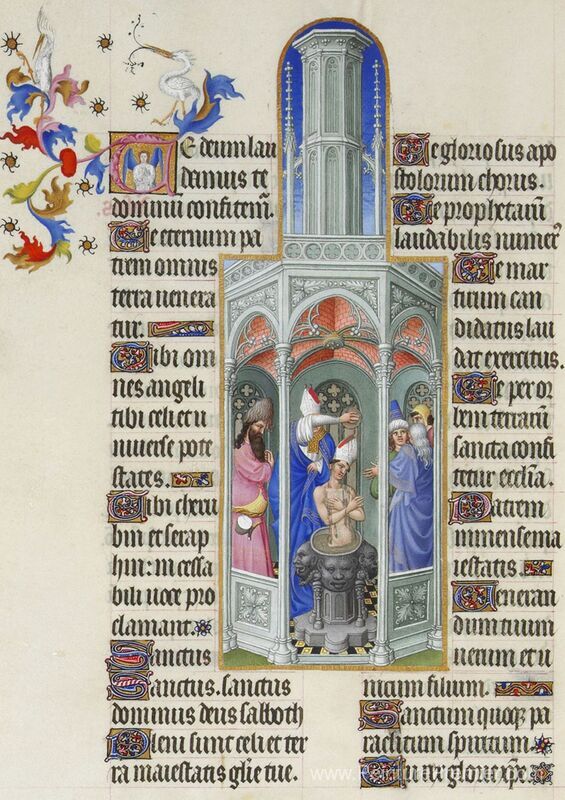 Te deum lau
damus te
dominū confitem̄.
Te eternum pa
trem omnis
terra uenera
tur.
Tibi om
nes angeli
tibi celi et u
niuerse pote
states.
Tibi cheru
bin et serap
hin: incessa
bili uoce pro
clamant.
Sanctus
Sanctus. sanctus
dominus deus sabaoth
Pleni sunt celi et ter
ra maiestatis glīe tue.
Te gloriosus apo
stolorum chorus.
Te prophetarū
laudabilis numerꝰ
Te mar
tirum can
didatus lau
dat exercitus.
Te per or
bem terrarū
sancta confi
tetur ecclīa.
Patrem
inmense ma
iestatis.
Veneran
dum tuum
uerum et u
nicum filium.
Sanctum quoqꝫ pa
raclitum spiritum.
Tu rex glorie xpe.